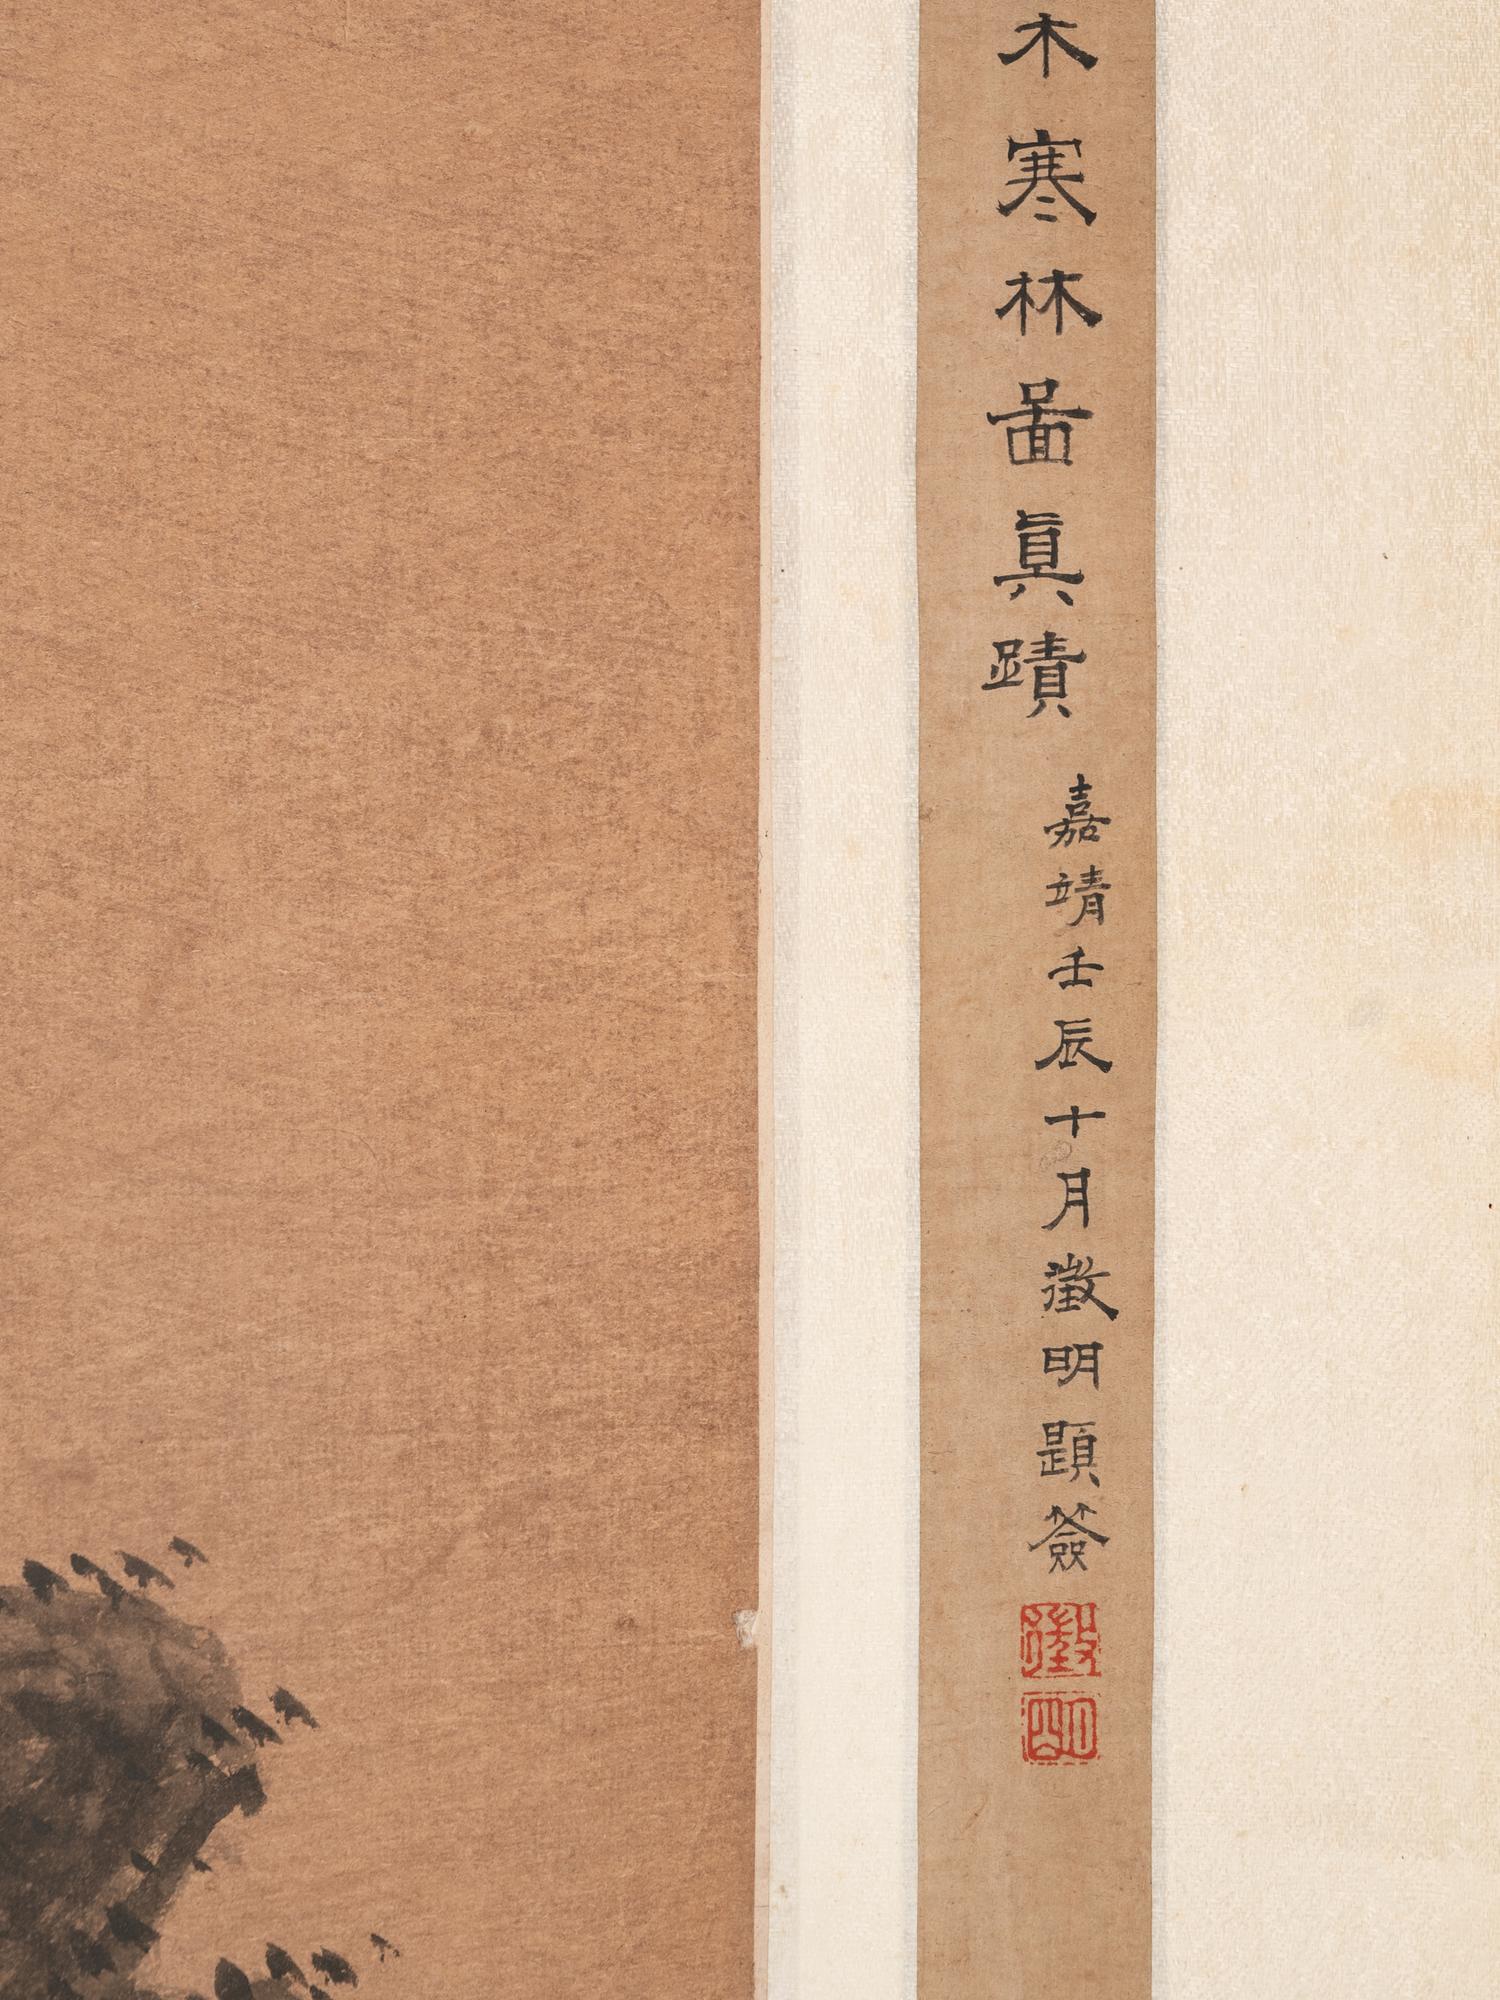 木寒林啚眞蹟
嘉靖壬辰十月徵明題簽
徵
明